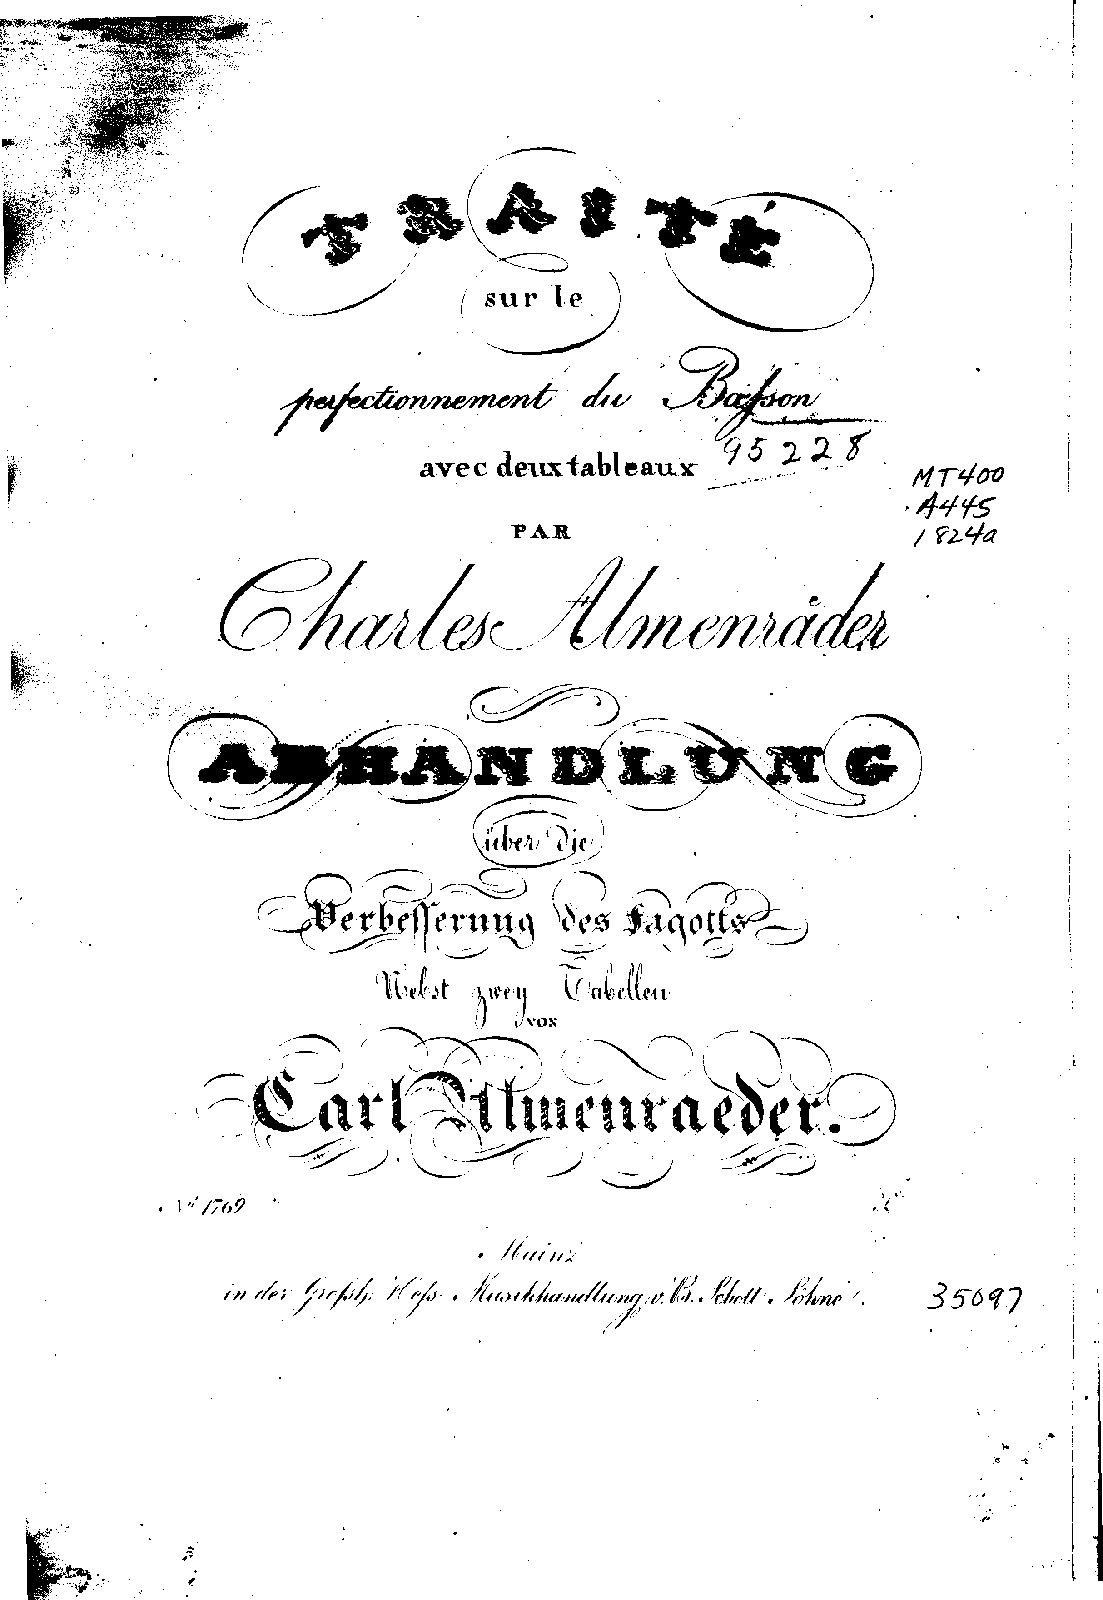 TRAITÉ
sur le
perfectionnement du Baſson
95228
avec deux tableaux
MT400
A445
1824a
PAR
Charles Almenråder
ABHANDLUNG
über die
Verbeſſerung des Fagotts
Nebst zwey Tabellen
VON
Carl Almenraeder.
Nº 1769
Mainz
in der Großh. Heſs. Musikhandlung v. B. Schott Söhne.
35097